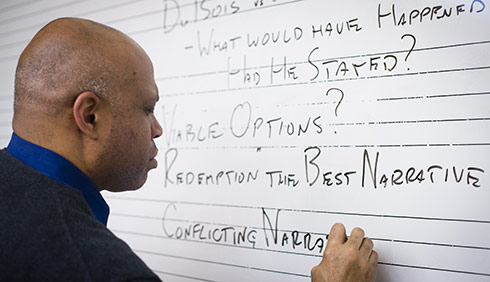 DuBois vs
- What would have Happened
Had He Stayed?
Viable Options?
Redemption the Best Narrative
Conflicting Narra